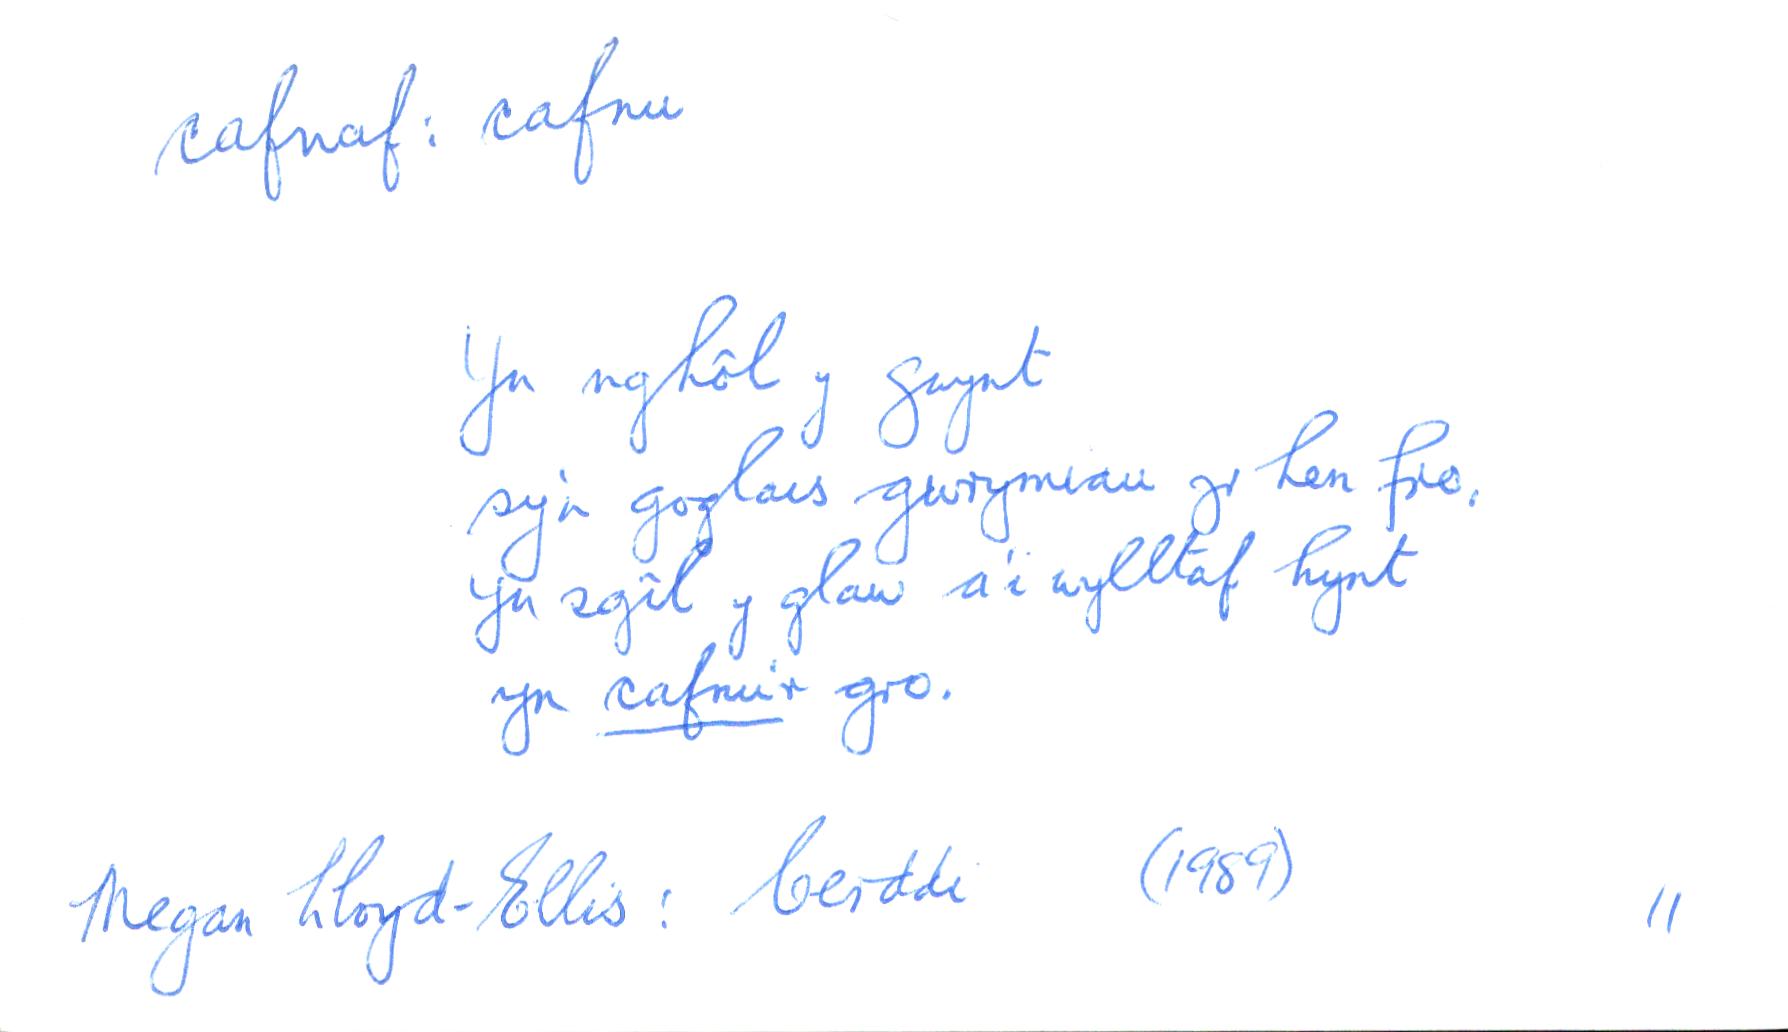 cafnaf: cafnu
Yn nghôl y gwynt
sy'n goglais gwrymiau yr hen fro.
Yn sgîl y glaw a'i wylltaf hynt
yn cafnu'r gro.
Megan Lloyd-Ellis: Cerddi (1989) 11